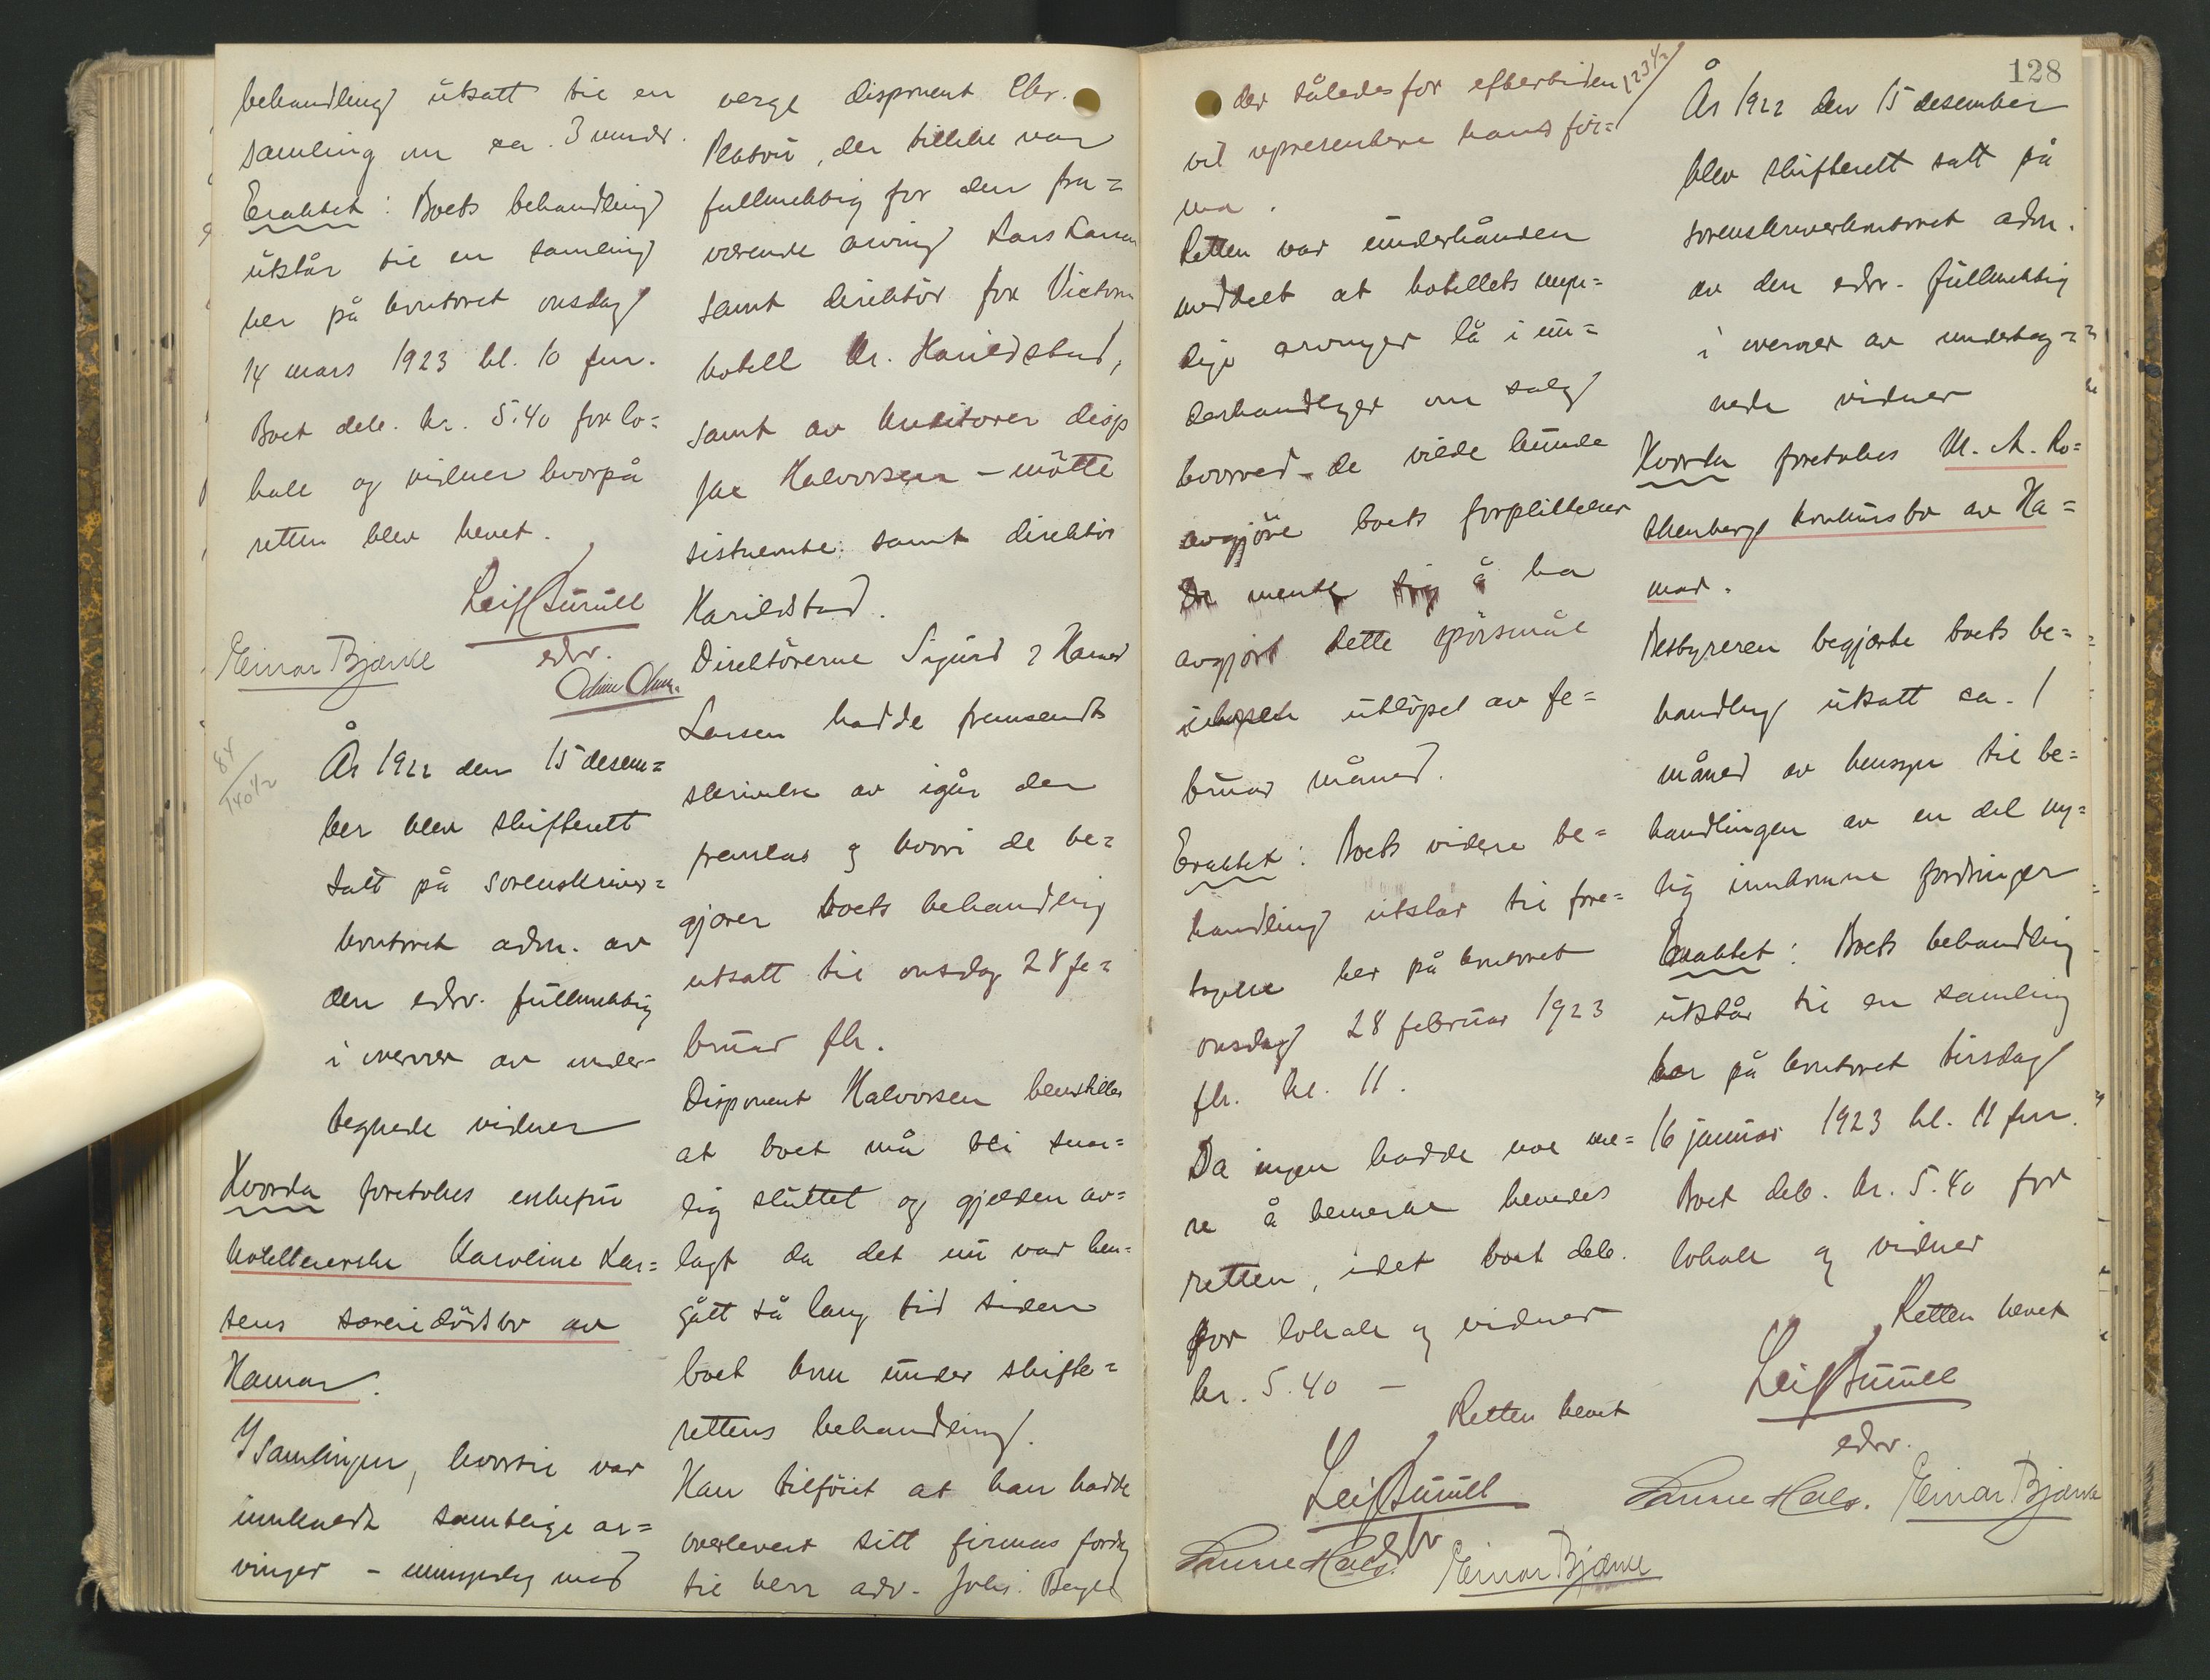 behandling utsatt til en
samling om ca. 3 mndr.
Eraktet: Boets behandling
utstår til en samling
her på kontoret onsdag
14 mars 1923 kl. 10 fm.
Boet deb. kr. 5.40 for lo=
kale og vidner hvorpå
retten blev hevet.
Leif
edsv.
Einar Bjærke
84/140 1/2
År 1922 den 15 desem=
ber blev skifterett
satt på sorenskriver=
kontoret adm. av
den edsv. fullmektig
i overvær av under-
tegnede vidner
Hvorda foretokes enkefru
hotelleierske Karoline Lar=
sens særeiedødsbo av
Hamar.
I samlingen, hvortil var
innkaldt samtlige ar=
vinger – umyndig med
verge disponent Chr.
Platou, der tillike var
fullmektig for den fra=
værende arving Lars Larsen
samt direktør for Victoria
hotell Kr. Karildstad,
samt av kreditorer disp
Jac Halvorsen – møtte
sistnevnte samt direktør
Karildstad.
Direktørerne Sigurd & Harald
Larsen hadde fremsendt
skrivelse av igår der
fremlas og hvori de be=
gjærer boets behandling
utsatt til onsdag 28 fe=
bruar fk.
Disponent Halvorsen henstiller
at boet må bli snar=
lig sluttet og gjelden av=
lagt da det nu var hen=
gått så lang tid siden
boet kom under skifte=
rettens behandling.
Han tilføiet at han hadde
overlevert sitt firmas fordrg
til herr adv. Johs. Berger
der således for eftertiden
vil representere hans fir=
ma.
123 1/2
Retten var underhånden
meddelt at hotellets myn=
dige arvinger lå i un=
derhandlinger om salg
hvorved de vilde kunde
avgjøre boets forpliktelser
De mente sig å ha
avgjort dette spørsmål
utløpet av fe=
bruar måned.
Eraktet: Boets videre be=
handling utstår til fore=
tagelse her på kontoret
onsdag 28 februar 1923
fk. kl. 11.
Da ingen hadde noe me=
re å bemerke hevedes
retten, idet boet deb.
for lokale og vidner
kr. 5.40 –
Retten hevet
Leif
edsv
Einar Bjærke
128
År 1922 den 15 desember
blev skifterett satt på
sorenskriverkontoret adm.
av den edsv. fullmektig
i overvær av underteg=
nede vidner
Hvorda foretokes M. A. Ro=
thenberg konkursbo av Ha=
mar.
Bestyreren begjærte boets be=
handling utsatt ca. 1
måned av hensyn til be=
handlingen av en del ny=
lig innkomne fordringer
Eraktet: Boets behandling
utstår til en samling
her på kontoret tirsdag
16 januar 1923 kl. 11 fm.
Boet deb. kr. 5.40 for
lokale og vidner
Retten hevet
Leif
edsv.
Einar Bjærke